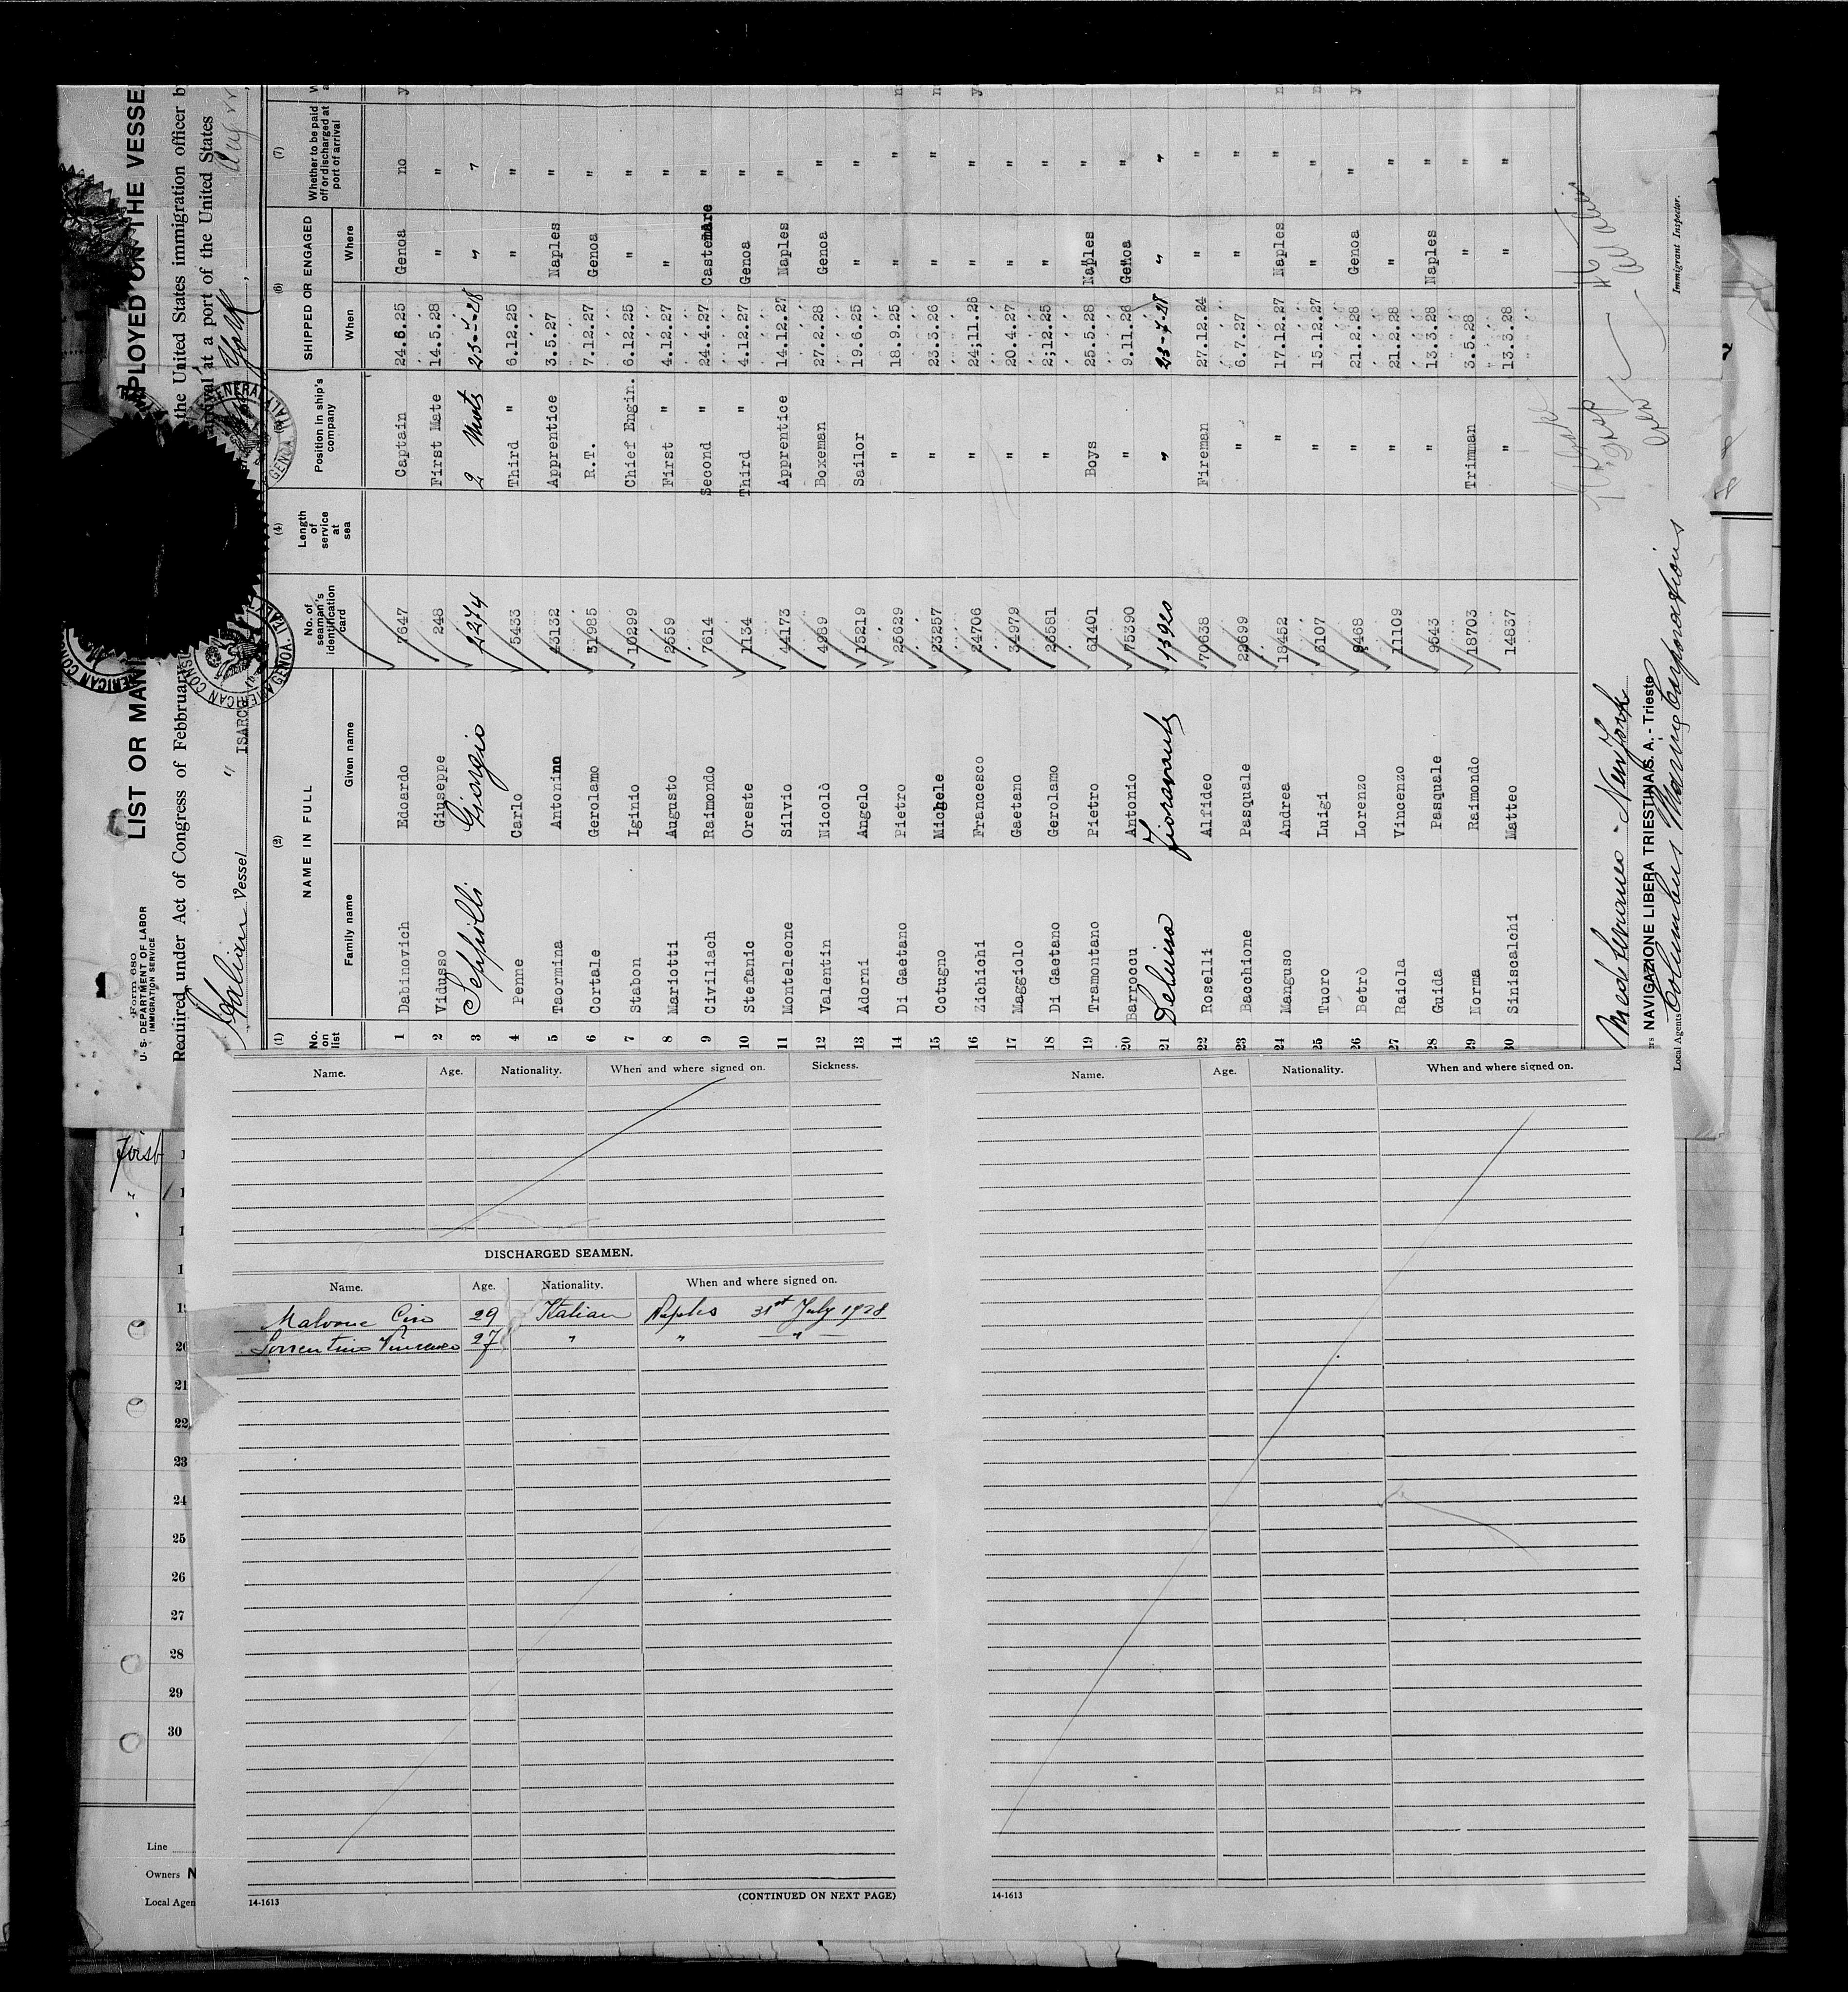 Form 680
U. S. DEPARTMENT OF LABOR
IMMIGRATION SERVICE
LIST OR MAN PLOYED ON THE VESSE
Required under Act of Congress of February the United States immigration officer b
arrival at a port of the United States
Italian Vessel " ISARCO York,
(1) (2) (4) (6) (7)
No. on list NAME IN FULL No. of seaman's identification card Length of service at sea Position in ship's company SHIPPED OR ENGAGED Whether to be paid off or discharged at port of arrival
Family name Given name When Where
1 Dabinovich Edoardo 7647 Captain 24.6.25 Genoa no y
2 Vidusso Giuseppe 248 First Mate 14.5.28 " "
3 Seppilli Giorgio 2274 2 Mate 23-7-28 " "
4 Penne Carlo 5433 Third " 6.12.25 " "
5 Taormina Antonino 43132 Apprentice 3.5.27 Naples "
6 Cortale Gerolamo 51985 R.T. 7.12.27 Genoa "
7 Stabon Iginio 10299 Chief Engin. 6.12.25 " "
8 Mariotti Augusto 2559 First " 4.12.27 " "
9 Civiliach Raimondo 7614 Second " 24.4.27 Castemare "
10 Stefanic Oreste 1134 Third " 4.12.27 Genoa "
11 Monteleone Silvio 44173 Apprentice 14.12.27 Naples "
12 Valentin Nicolò 4989 Boxeman 27.2.28 Genoa "
13 Adorni Angelo 15219 Sailor 19.6.25 " "
14 Di Gaetano Pietro 25629 " 18.9.25 " " n
15 Cotugno Michele 23257 " 23.3.26 " " n
16 Zichichi Francesco 24706 " 24;11.26 " " y
17 Maggiolo Gaetano 34979 " 20.4.27 " "
18 Di Gaetano Gerolamo 23581 " 2;12.25 " "
19 Tramontano Pietro 61401 Boys 25.5.28 Naples "
20 Barroccu Antonio 75390 " 9.11.26 Genoa "
21 Deluisa Fioravante 13920 " 23-7-28 " "
22 Roselli Alfideo 70638 Fireman 27.12.24 " "
23 Bacchione Pasquale 22699 " 6.7.27 " "
24 Manguso Andrea 18452 " 17.12.27 Naples " n
25 Tuoro Luigi 6107 " 15.12.27 " " n
26 Betrò Lorenzo 9468 " 21.2.28 Genoa " y
27 Raiola Vincenzo 11109 " 21.2.28 " "
28 Guida Pasquale 9543 " 13.3.28 Naples "
29 Norma Raimondo 18703 Trimman 3.5.28 " "
30 Siniscalchi Matteo 14837 " 13.3.28 " "
Mediterraneo - New York
NAVIGAZIONE LIBERA TRIESTINA S. A. - Trieste
Local Agents Columbus Maring Corporations
Immigrant Inspector.
Name. Age. Nationality. When and where signed on. Sickness.
DISCHARGED SEAMEN.
Name. Age. Nationality. When and where signed on.
Malvone Ciro 29 Italian Naples 31st July 1928
Sorrentino Vincenzo 27 " " — " —
14-1613 (CONTINUED ON NEXT PAGE)
Name. Age. Nationality. When and where signed on.
14-1613
First
"
20
21
22
23
24
25
26
27
28
29
30
Line
Owners N
Local Agen